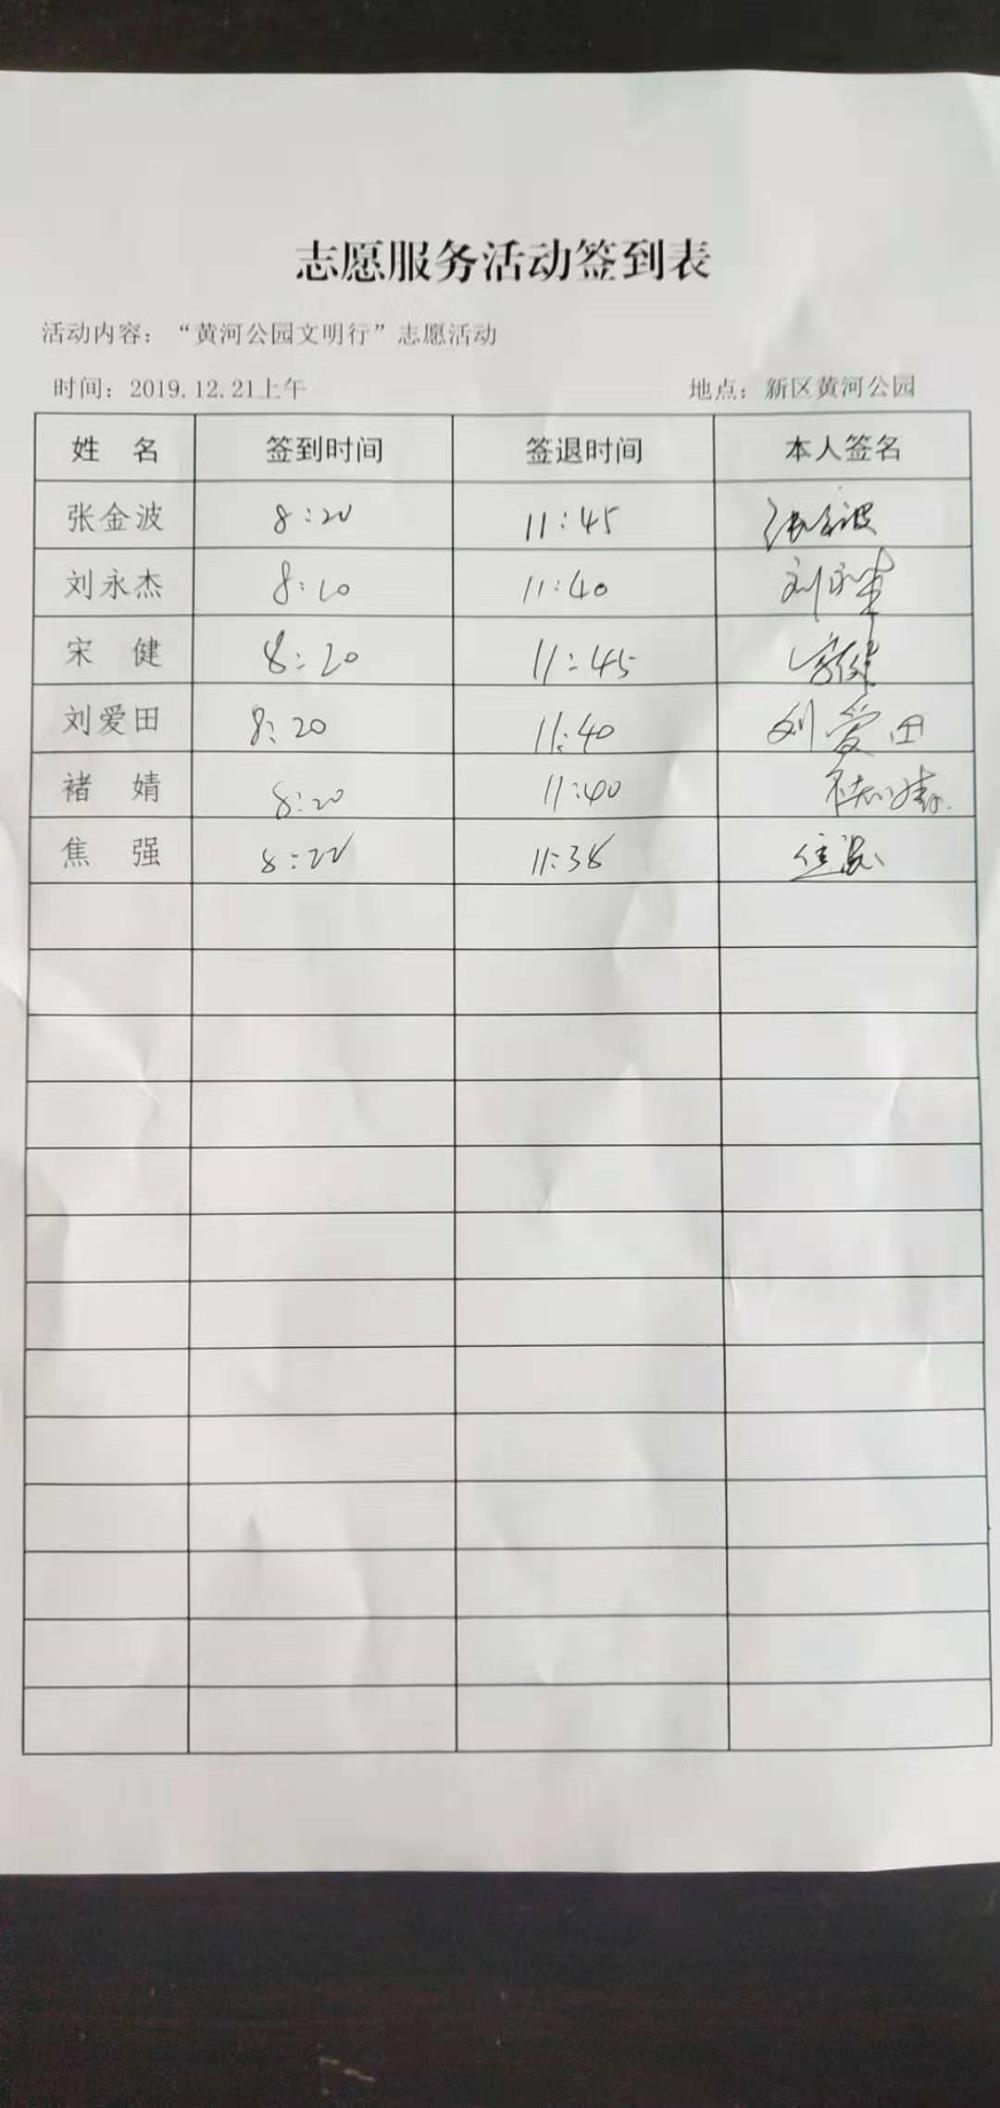 志愿服务活动签到表
活动内容：“黄河公园文明行”志愿活动
时间：2019.12.21上午 地点：新区黄河公园
姓 名 签到时间 签退时间 本人签名
张金波 8:20 11:45 张金波
刘永杰 8:10 11:40 刘永杰
宋 健 8:20 11:45 宋健
刘爱田 8:20 11:40 刘爱田
褚 婧 8:20 11:40 褚婧
焦 强 8:22 11:38 焦强